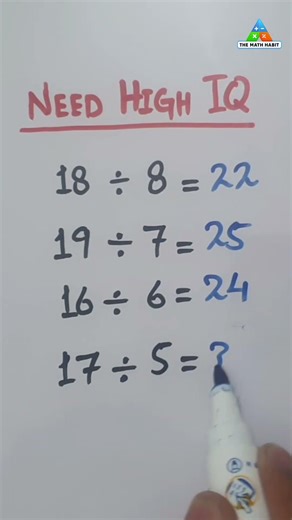 THE MATH HABIT
NEED HIGH IQ
18 ÷ 8 = 22
19 ÷ 7 = 25
16 ÷ 6 = 24
17 ÷ 5 = ?